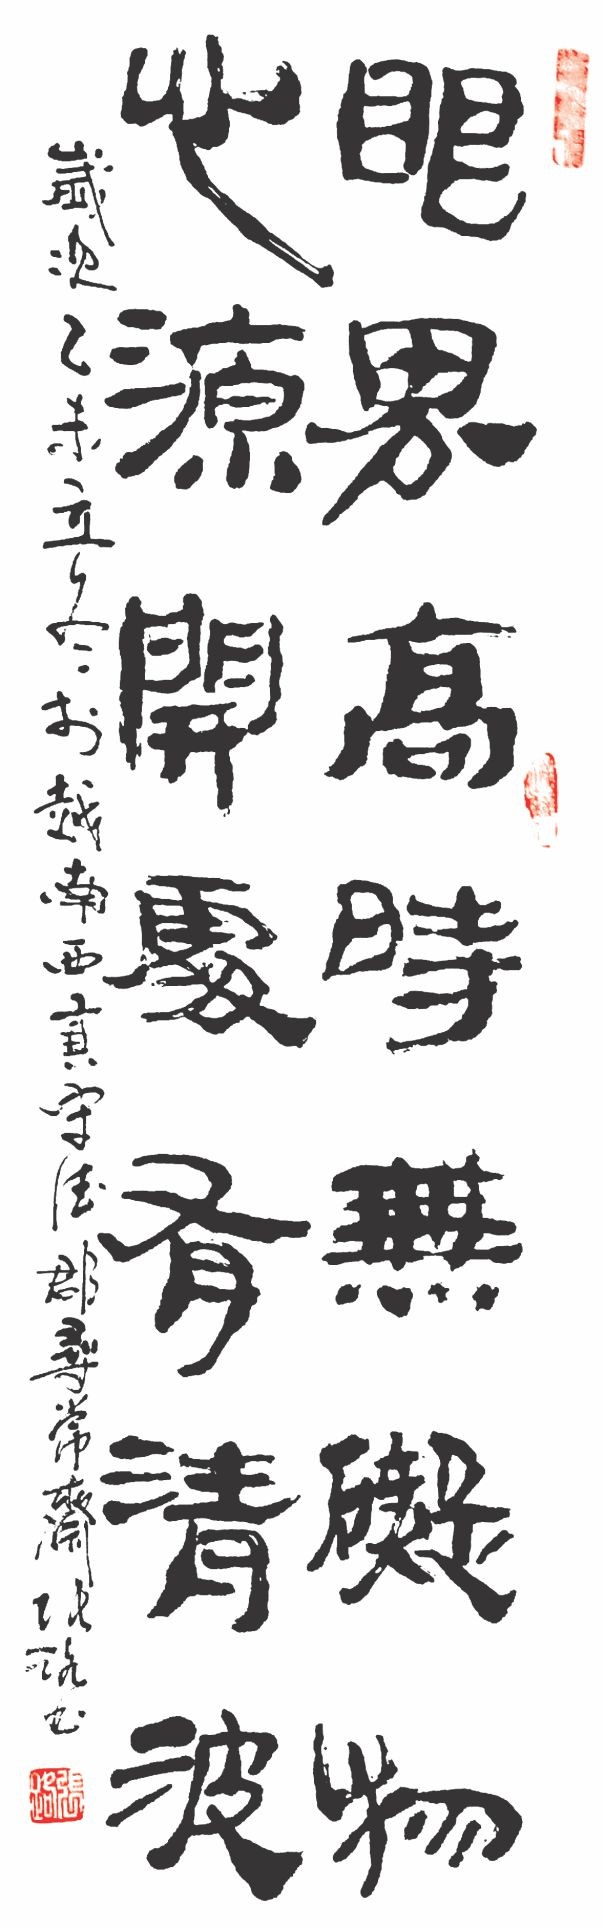 眼界高時無礙物
心源開處有清波
歲次乙未立冬於越南西寧守德郡尋常齋張路書
張路